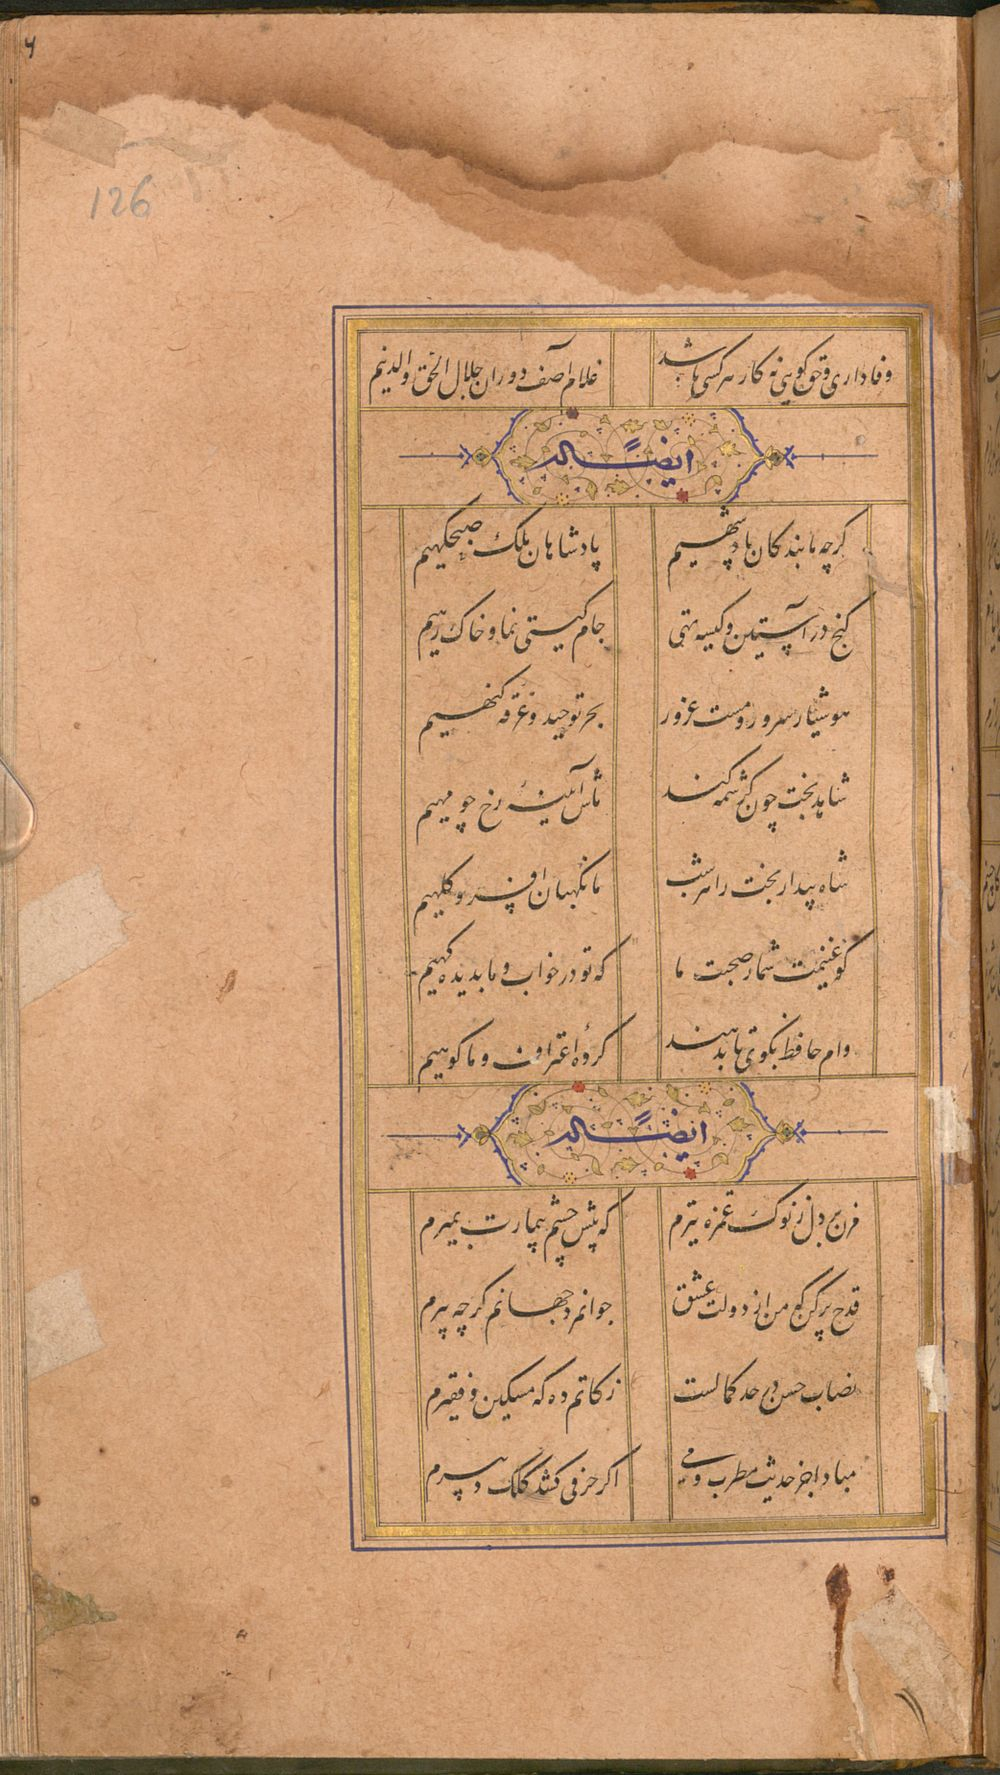 ۶
126
وفاداری و حق کویی نه کار هر کسی باشد غلام آصف دوران جلال الحق والدینیم
ایضاً له
کرچه ما بندکان پادشهیم پادشاهان ملک صبحکهیم
کنج در آستین و کیسه تهی جام کیتی نما و خاک رهیم
هوشیار سرور و مست غرور بحر توحید و غرقه کنهیم
شاهد بخت چون کرشمه کند ماش آئینه رخ چو مهیم
شاه بیدار بخت را هر شب ما نکهبان افسر و کلهیم
کو غنیمت شمار صحبت ما که تو در خواب و ما بدیده کهیم
وام حافظ بکوی تا بدهند کرده اعتراف و ما کوهیم
ایضاً له
مزن بر دل ز نوک غمزه تیرم که پیش چشم بیمارت بمیرم
قدح پر کن که من از دولت عشق جوانمرد جهانم کرچه پیرم
نصاب حسن در حد کمالست زکاتم ده که مسکین و فقیرم
مبادا جز حدیث مطرب و می اکر حرفی کشد کلک دبیرم